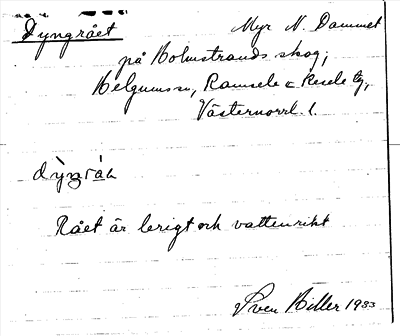 Dyngrået
Myr N. Dammet
på Holmstrands skog,
Helgumssn, Ramsele o Resele tg,
Västernorrl. l.
Rået är lerigt och vattenrikt
Sven Hiller 1933